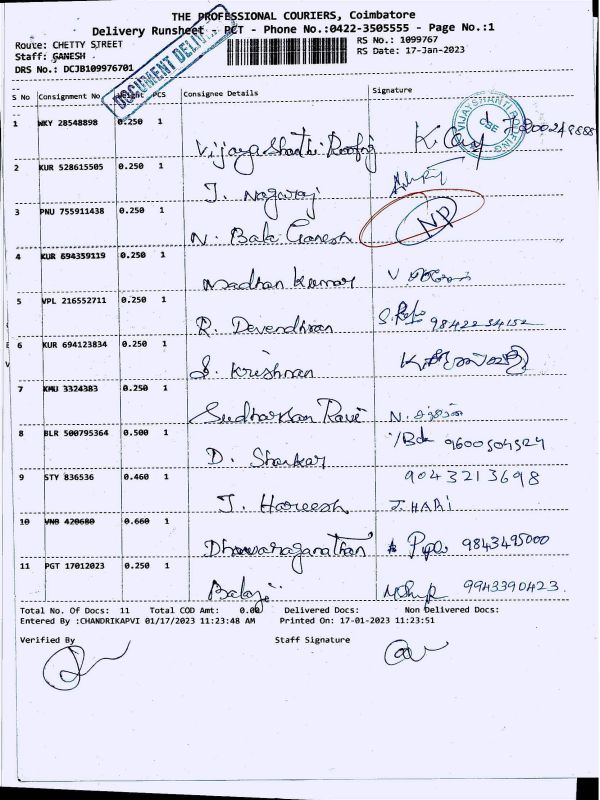 THE PROFESSIONAL COURIERS, Coimbatore
Delivery Runsheet - PCT - Phone No.:0422-3505555 - Page No.:1
Route: CHETTY STREET
RS No.: 1099767
Staff: GANESH
RS Date: 17-Jan-2023
DRS No.: DCJB109976701
DOCUMENT
S No Consignment No Weight PCS Consignee Details Signature
1 WKY 28548898 0.250 1 Vijaya Shanthi Roofing
2 KUR 528615505 0.250 1 J. Nagaraj
3 PNU 755911438 0.250 1 N. Bala Ganesh NP
4 KUR 694359119 0.250 1 Madhan Kumar
5 VPL 216552711 0.250 1 R. Devendhran 9842234152
6 KUR 694123834 0.250 1 S. Krishnan
7 KMU 3324383 0.250 1 Sudharsan Ravi
8 BLR 500795364 0.500 1 D. Shankar 9600504524
9 STY 836536 0.460 1 J. Hareesh 9043213698
J. HARI
10 VNB 420680 0.660 1 9843495000
11 PGT 17012023 0.250 1 Balaji 9943390423
Total No. Of Docs: 11 Total COD Amt: 0.00 Delivered Docs: Non Delivered Docs:
Entered By :CHANDRIKAPVI 01/17/2023 11:23:48 AM Printed On: 17-01-2023 11:23:51
Verified By Staff Signature